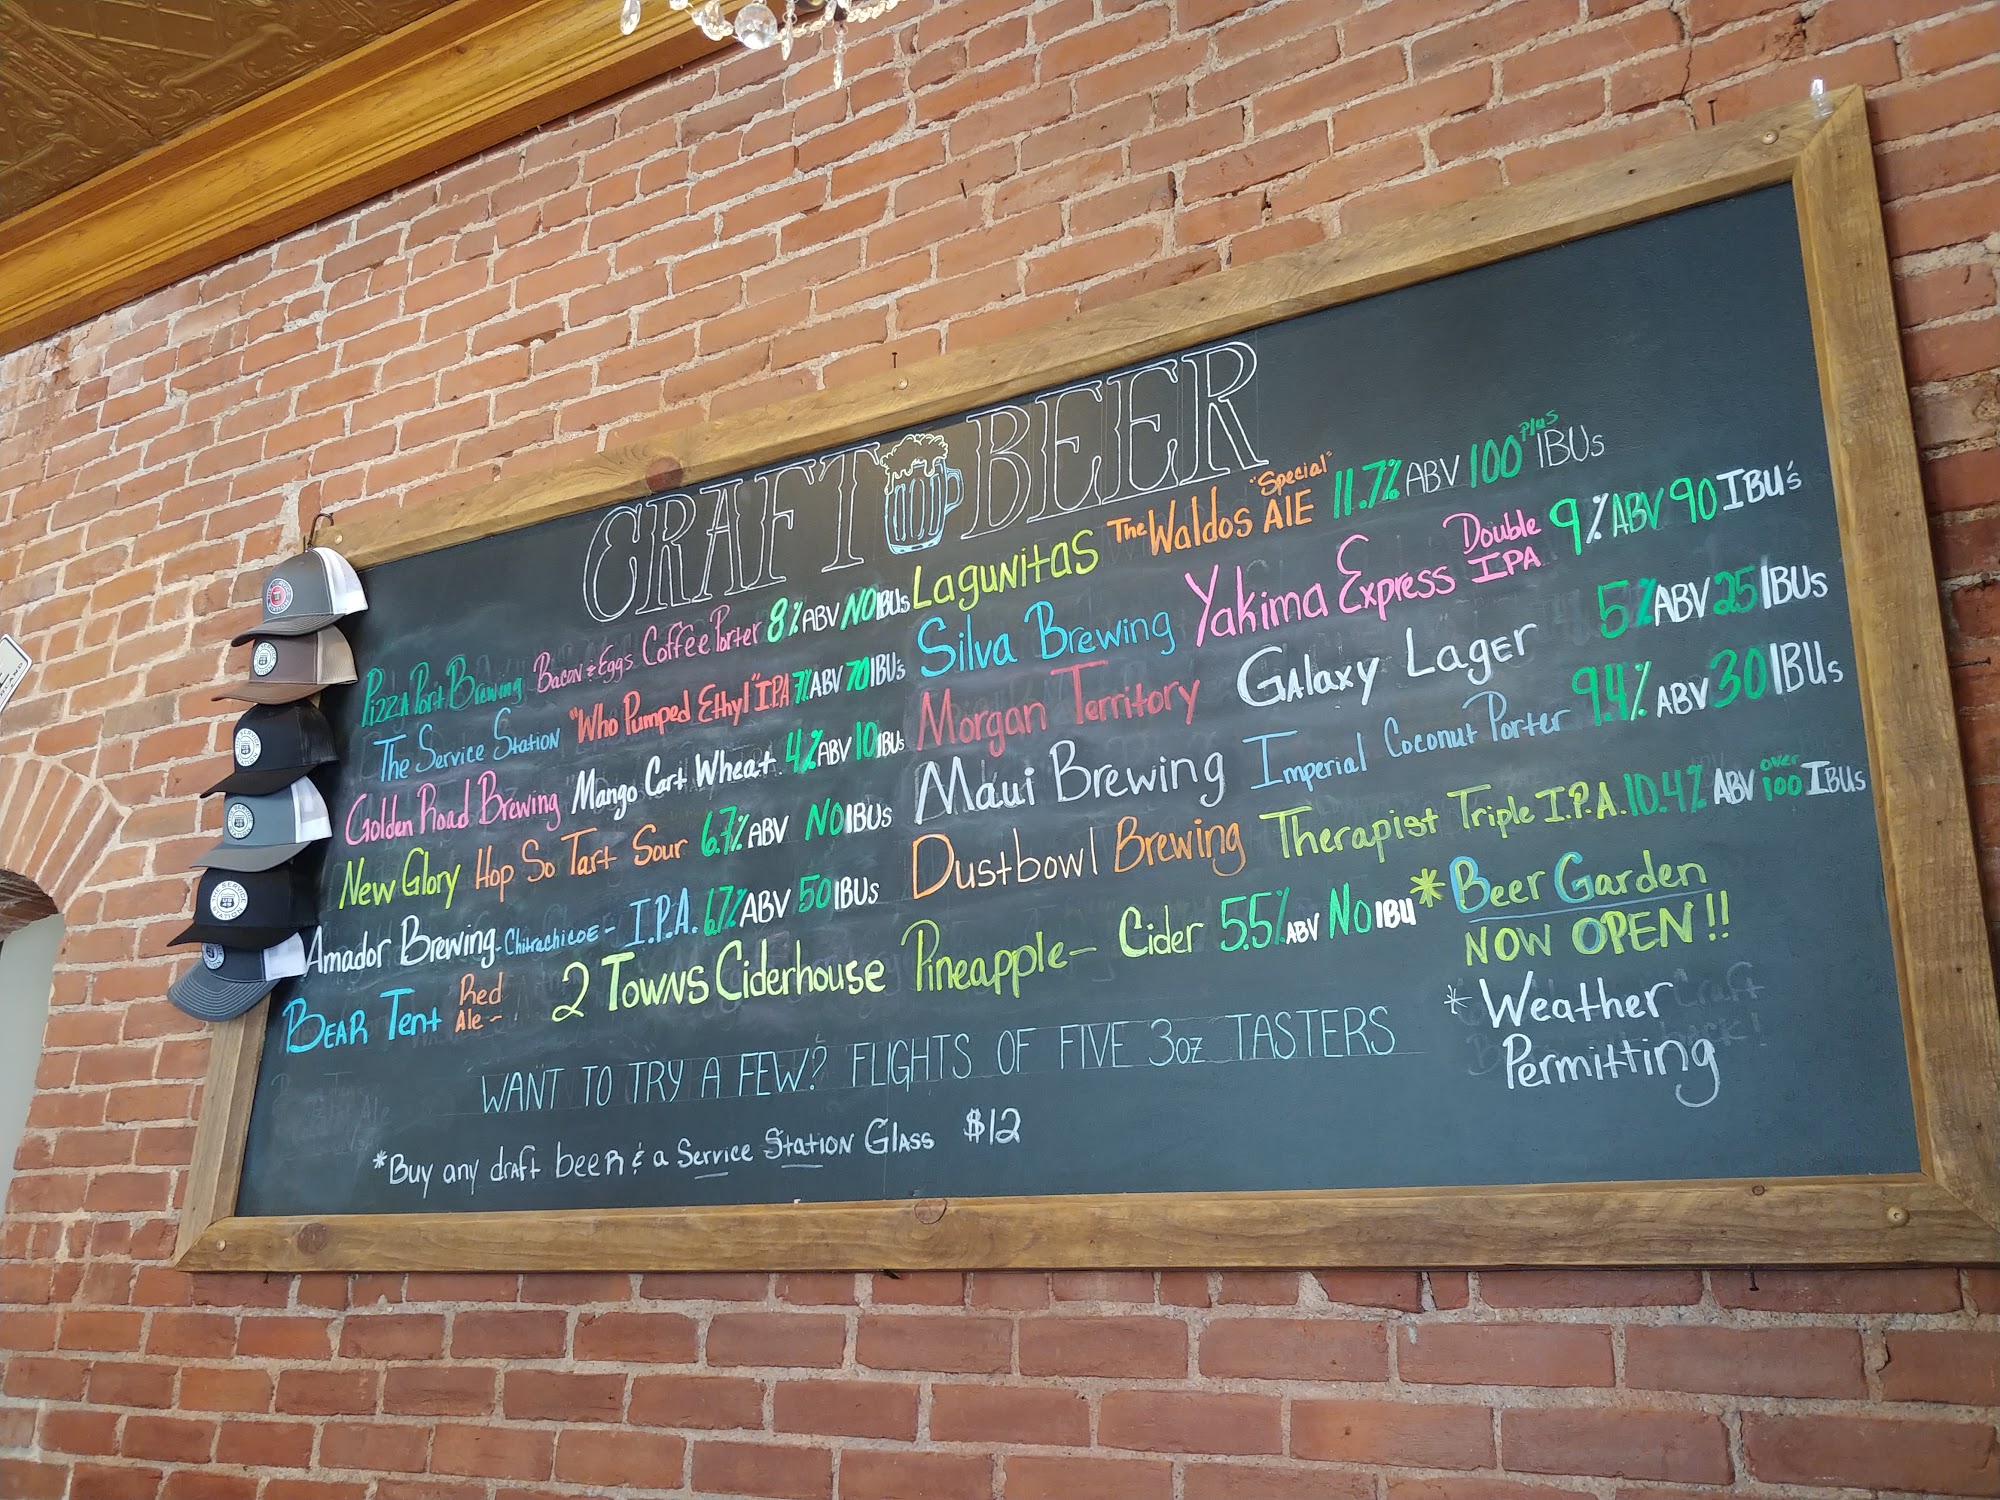 CRAFT BEER
Pizza Port Brewing Bacon & Eggs Coffee Porter 8% ABV NO IBUs
The Service Station "Who Pumped Ethyl" IPA 7% ABV 70 IBU's
Golden Road Brewing Mango Cart Wheat 4% ABV 10 IBUs
New Glory Hop So Tart Sour 6.7% ABV NO IBUs
Amador Brewing - Chitrachicoe - I.P.A. 6.7% ABV 50 IBUs
Bear Tent Red Ale -
Lagunitas The Waldos "Special" Ale 11.7% ABV 100 plus IBUs
Silva Brewing Yakima Express Double IPA 9% ABV 90 IBU's
Morgan Territory Galaxy Lager 5% ABV 25 IBUs
Maui Brewing Imperial Coconut Porter 9.4% ABV 30 IBUs
Dustbowl Brewing Therapist Triple I.P.A. 10.4% ABV over 100 IBUs
2 Towns Ciderhouse Pineapple - Cider 5.5% ABV No IBU
* Beer Garden
NOW OPEN!!
* Weather
Permitting
WANT TO TRY A FEW? FLIGHTS OF FIVE 3oz TASTERS
*Buy any draft beer & a Service Station Glass $12
THE SERVICE STATION